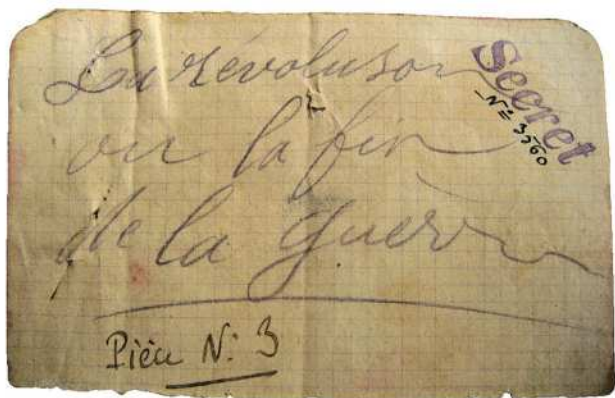 La révoluson
ou la fin
de la guerre
Secret
N= 3560
Pièce N: 3